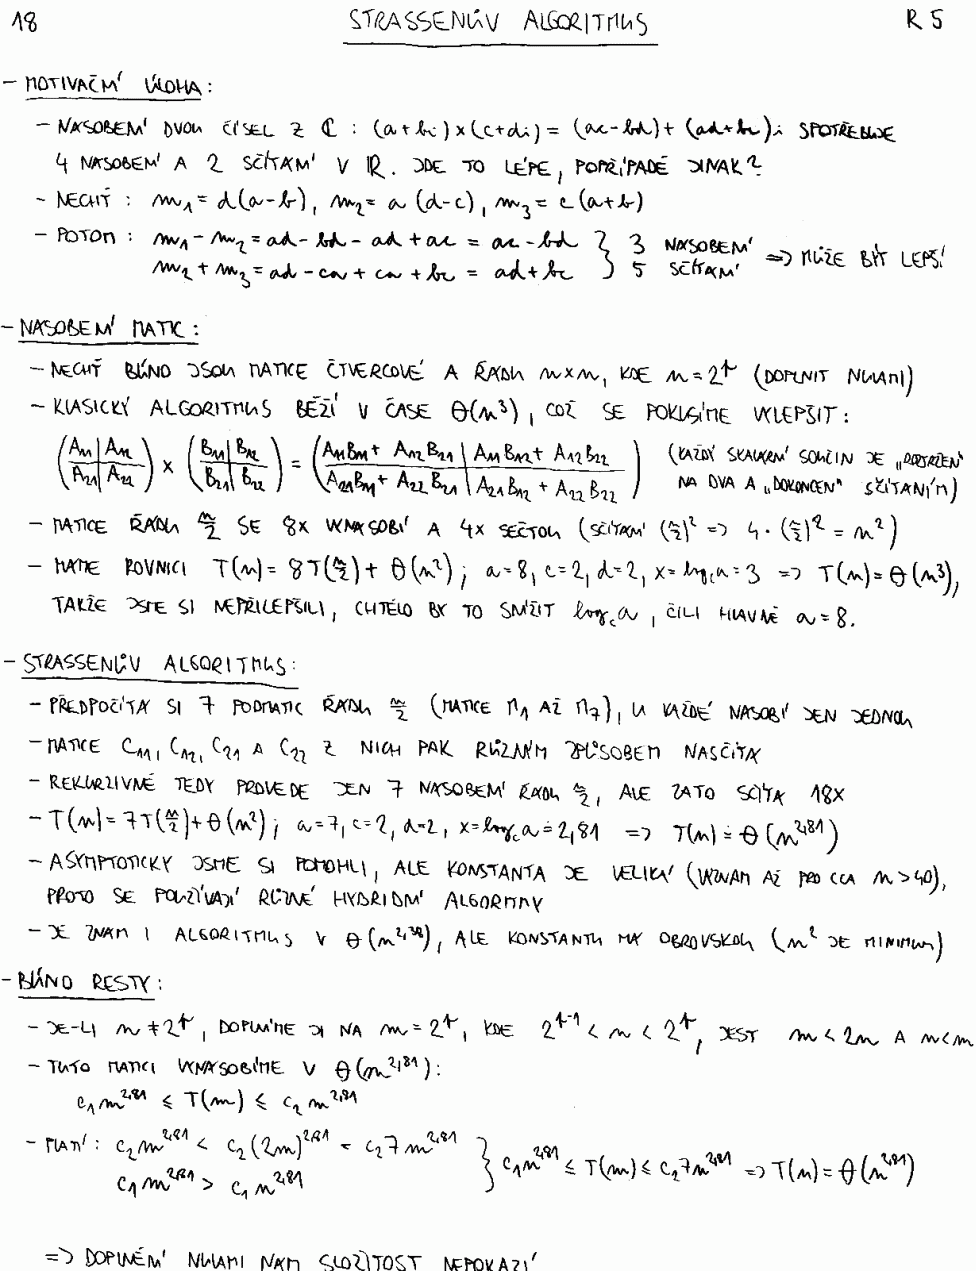 18 STRASSENŮV ALGORITMUS R5
- MOTIVAČNÍ ÚLOHA:
- NÁSOBENÍ DVOU ČÍSEL Z ℂ : (a+bi)×(c+di) = (ac-bd)+(ad+bc)i SPOTŘEBUJE
4 NÁSOBENÍ A 2 SČÍTÁNÍ V ℝ. JDE TO LÉPE, POPŘÍPADĚ JINAK?
- NECHŤ : m₁ = d(a-b), m₂ = a(d-c), m₃ = c(a+b)
- POTOM : m₁-m₂ = ad-bd-ad+ac = ac-bd } 3 NÁSOBENÍ => MŮŽE BÝT LEPŠÍ
m₂+m₃ = ad-ca+ca+bc = ad+bc } 5 SČÍTÁNÍ
- NÁSOBENÍ MATIC :
- NECHŤ BÚNO JSOU MATICE ČTVERCOVÉ A ŘÁDU n×n, KDE n=2^k (DOPLNIT NULAMI)
- KLASICKÝ ALGORITMUS BĚŽÍ V ČASE Θ(n³), COŽ SE POKUSÍME VYLEPŠIT:
(A₁₁|A₁₂) × (B₁₁|B₁₂) = (A₁₁B₁₁ + A₁₂B₂₁ | A₁₁B₁₂ + A₁₂B₂₂) (KAŽDÝ SKALÁRNÍ SOUČIN JE „ROZTRŽEN"
(A₂₁|A₂₂) (B₂₁|B₂₂) (A₂₁B₁₁ + A₂₂B₂₁ | A₂₁B₁₂ + A₂₂B₂₂) NA DVA A „DOKONČEN" SČÍTÁNÍM)
- MATICE ŘÁDU n/2 SE 8X VYNÁSOBÍ A 4X SEČTOU (SČÍTÁNÍ (n/2)² => 4·(n/2)² = n²)
- MÁME ROVNICI T(n) = 8T(n/2) + Θ(n²); a=8, c=2, d=2, x=log_c a = 3 => T(n) = Θ(n³),
TAKŽE JSME SI NEPŘILEPŠILI, CHTĚLO BY TO SNÍŽIT log_c a, ČILI HLAVNĚ a=8.
- STRASSENŮV ALGORITMUS:
- PŘEDPOČÍTÁ SI 7 PODMATIC ŘÁDU n/2 (MATICE M₁ AŽ M₇), U KAŽDÉ NÁSOBÍ JEN JEDNOU
- MATICE C₁₁, C₁₂, C₂₁ A C₂₂ Z NICH PAK RŮZNÝM ZPŮSOBEM NASČÍTÁ
- REKURZIVNĚ TEDY PROVEDE JEN 7 NÁSOBENÍ ŘÁDU n/2, ALE ZATO SČÍTÁ 18X
- T(n) = 7T(n/2) + Θ(n²); a=7, c=2, d=2, x=log_c a ≐ 2,81 => T(n) ≐ Θ(n^2,81)
- ASYMPTOTICKY JSME SI POMOHLI, ALE KONSTANTA JE VELIKÁ (VÝZNAM AŽ PRO CCA n>40),
PROTO SE POUŽÍVAJÍ RŮZNÉ HYBRIDNÍ ALGORITMY
- JE ZNÁM I ALGORITMUS V Θ(n^2,38), ALE KONSTANTU MÁ OBROVSKOU (n² JE MINIMUM)
- BÚNO RESTY:
- JE-LI n ≠ 2^k, DOPLNÍME JI NA m = 2^k, KDE 2^k-1 < n < 2^k, JEST m < 2n A n<m
- TUTO MATICI VYNÁSOBÍME V Θ(m^2,81):
c₁m^2,81 ≤ T(m) ≤ c₂m^2,81
- PLATÍ : c₂m^2,81 < c₂(2n)^2,81 = c₂7n^2,81 } c₁n^2,81 ≤ T(m) ≤ c₂7n^2,81 => T(m) = Θ(n^2,81)
c₁m^2,81 > c₁n^2,81
=> DOPLNĚNÍ NULAMI NÁM SLOŽITOST NEPOKAZÍ